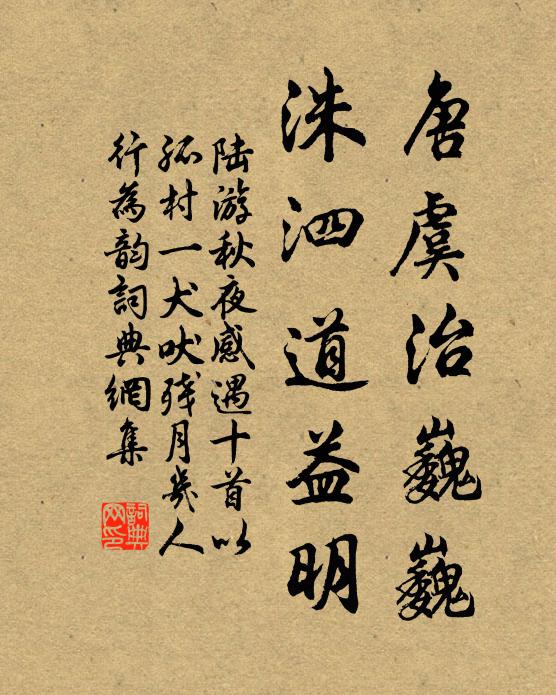 唐虞治巍巍
洙泗道益明
陆游秋夜感遇十首以
孤村一犬吠残月几人
行為韵詞典網集
詞典
网印